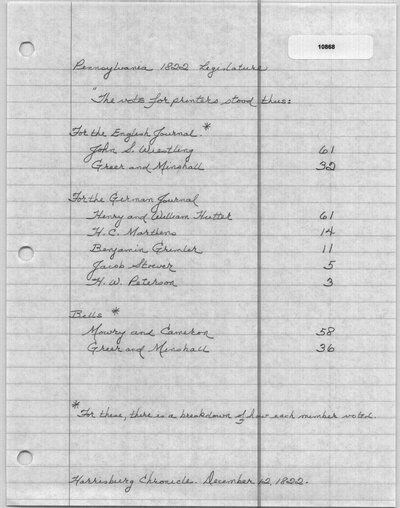 10868
Pennsylvania 1822 Legislature
"The vote for printers stood thus:
For the English Journal.*
John S. Wiestling 61
Greer and Minshall 32
For the German Journal
Henry and William Hutter 61
H. C. Marthens 14
Benjamin Grimler 11
Jacob Stoever 5
H. W. Peterson 3
Bills *
Mowry and Cameron 58
Greer and Minshall 36
* For these, there is a breakdown of how each member voted.
Harrisburg Chronicle. December 12, 1822.